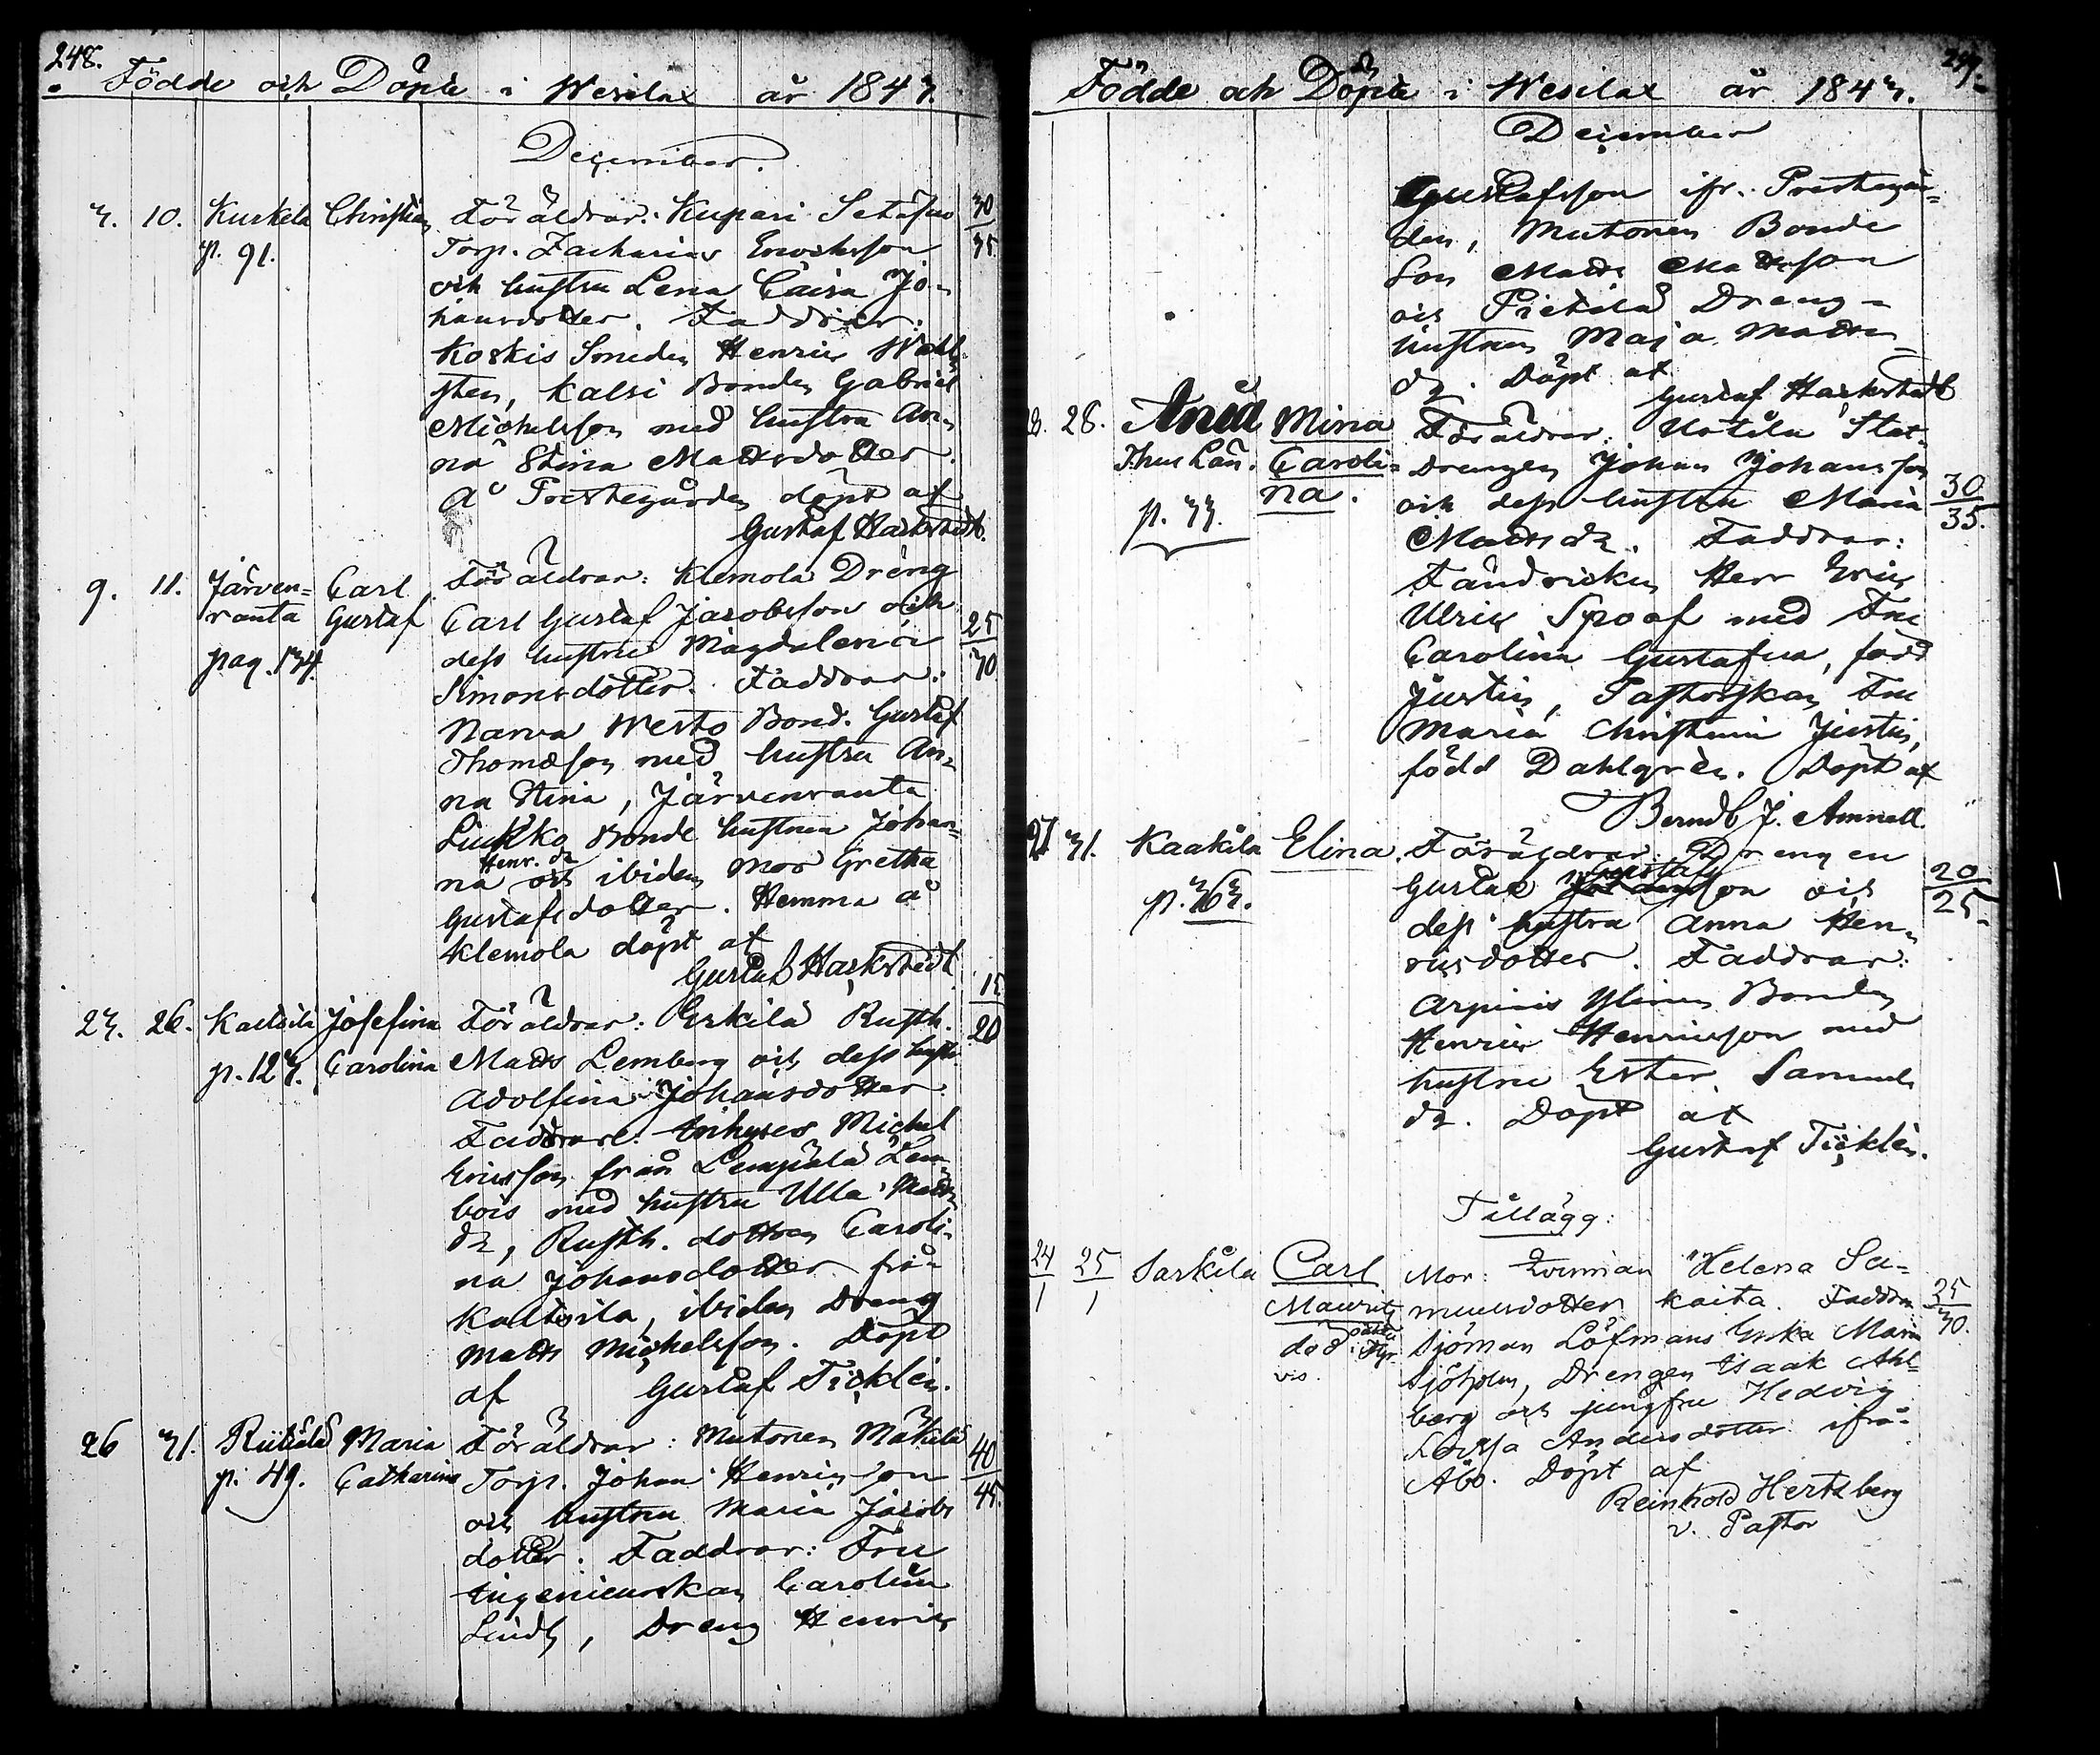 248.
Födde och Döpte i Wesilax år 1843.
December.
3. 10. Kuskela Christian Föräldrar: Kupari 30
p. 91. Torp. Zacharias Ericksson 35
och hustru Lena Caisa Jo-
hansdotter. Faddrar:
Koskis Smeden Henric Wahl-
sten, Kalsi Bonden Gabriel
Michelsson med hustru An-
na Stina Mattsdotter.
å Prestegården döpt af
Gustaf Hackstedt.
9. 11. Järven= Carl Föräldrar: Klemola Dräng
ranta Gustaf Carl Gustaf Jacobsson och 25
pag. 134. dess hustru Magdalena 30
Simonsdotter. Faddrar:
Narva Westo Bond. Gustaf
Thomasson med hustru An-
na Stina, Järvenranta
Liukko Bonde hustrun Johan-
Henr. dr
na och ibidem mor Gretha
Gustafsdotter. Hemma å
Klemola döpt af
Gustaf Hackstedt
15
23. 26. Kaltsila Josefina Föräldrar: Erkilä Rusth. 20
p. 123. Carolina Matts Lemberg och dess hust.
Adolfina Johansdotter.
Faddrare: Inhyses Michel
Ericsson från Lempälä Lem-
bois med hustru Ulla Matts
dr, Rusth. dottren Caroli-
na Johansdotter frå-
Kaltsila, ibidem Dreng
Matts Michelsson. Döpt
af Gustaf Ticklén.
26 31. Riitiälä Maria Föräldrar: Mutonen Mäkilä 40
p. 49. Catharina Torp. Johan Henricsson 45.
och hustru Maria Jacobs
dotter. Faddrar: Fru
Ingenieurskan Carolina
Lindh, Dreng Henric
249.
Födde och Döpte i Wesilax år 1843.
December
Gustafsson ifr. Prestegår=
den, Mutonen Bonde
Son Matts Mattsson
och Pietilä Dreng-
hustrun Maja Matts
dr. Döpt af
Gustaf Hackstedt
28. Aniä Mina Föräldrar: Uotila Stat-
Caroli= Drengen Johan Johansson 30
p. 33. na. och dess hustru Maria 35.
Matts dr. Faddrar:
Fändricken Herr Eric
Ulric Spoof med Fru
Carolina Gustafva, född
Justin, Pastorskan Fru
Maria Christina Justin,
född Dahlgrén. Döpt af
Berndt J. Amnell.
27 31. Kaakila Elina. Föräldrar: Drengen 20
Gustaf Gustafsson och 25.
p. 363. dess hustru Anna Hen-
ricsdotter. Faddrar:
Arpinis Ylinen Bonden
Henric Henricsson med
hustru Ester Samuels
dr. Döpt af
Gustaf Ticklén.
Tillägg:
24/1 25/1 Sarkila Carl Mor: Helena Sa- 25
Mauritz muelsdotter Kaita. Faddr. 30.
död Sjöman Löfmans Enka Maria
vis. Sjöholm, Drengen Isaak Ahl-
berg och jungfru Hedvig
Lovisa Andersdotter ifrå-
Åbo. Döpt af
Reinhold Hertzberg
v. Pastor